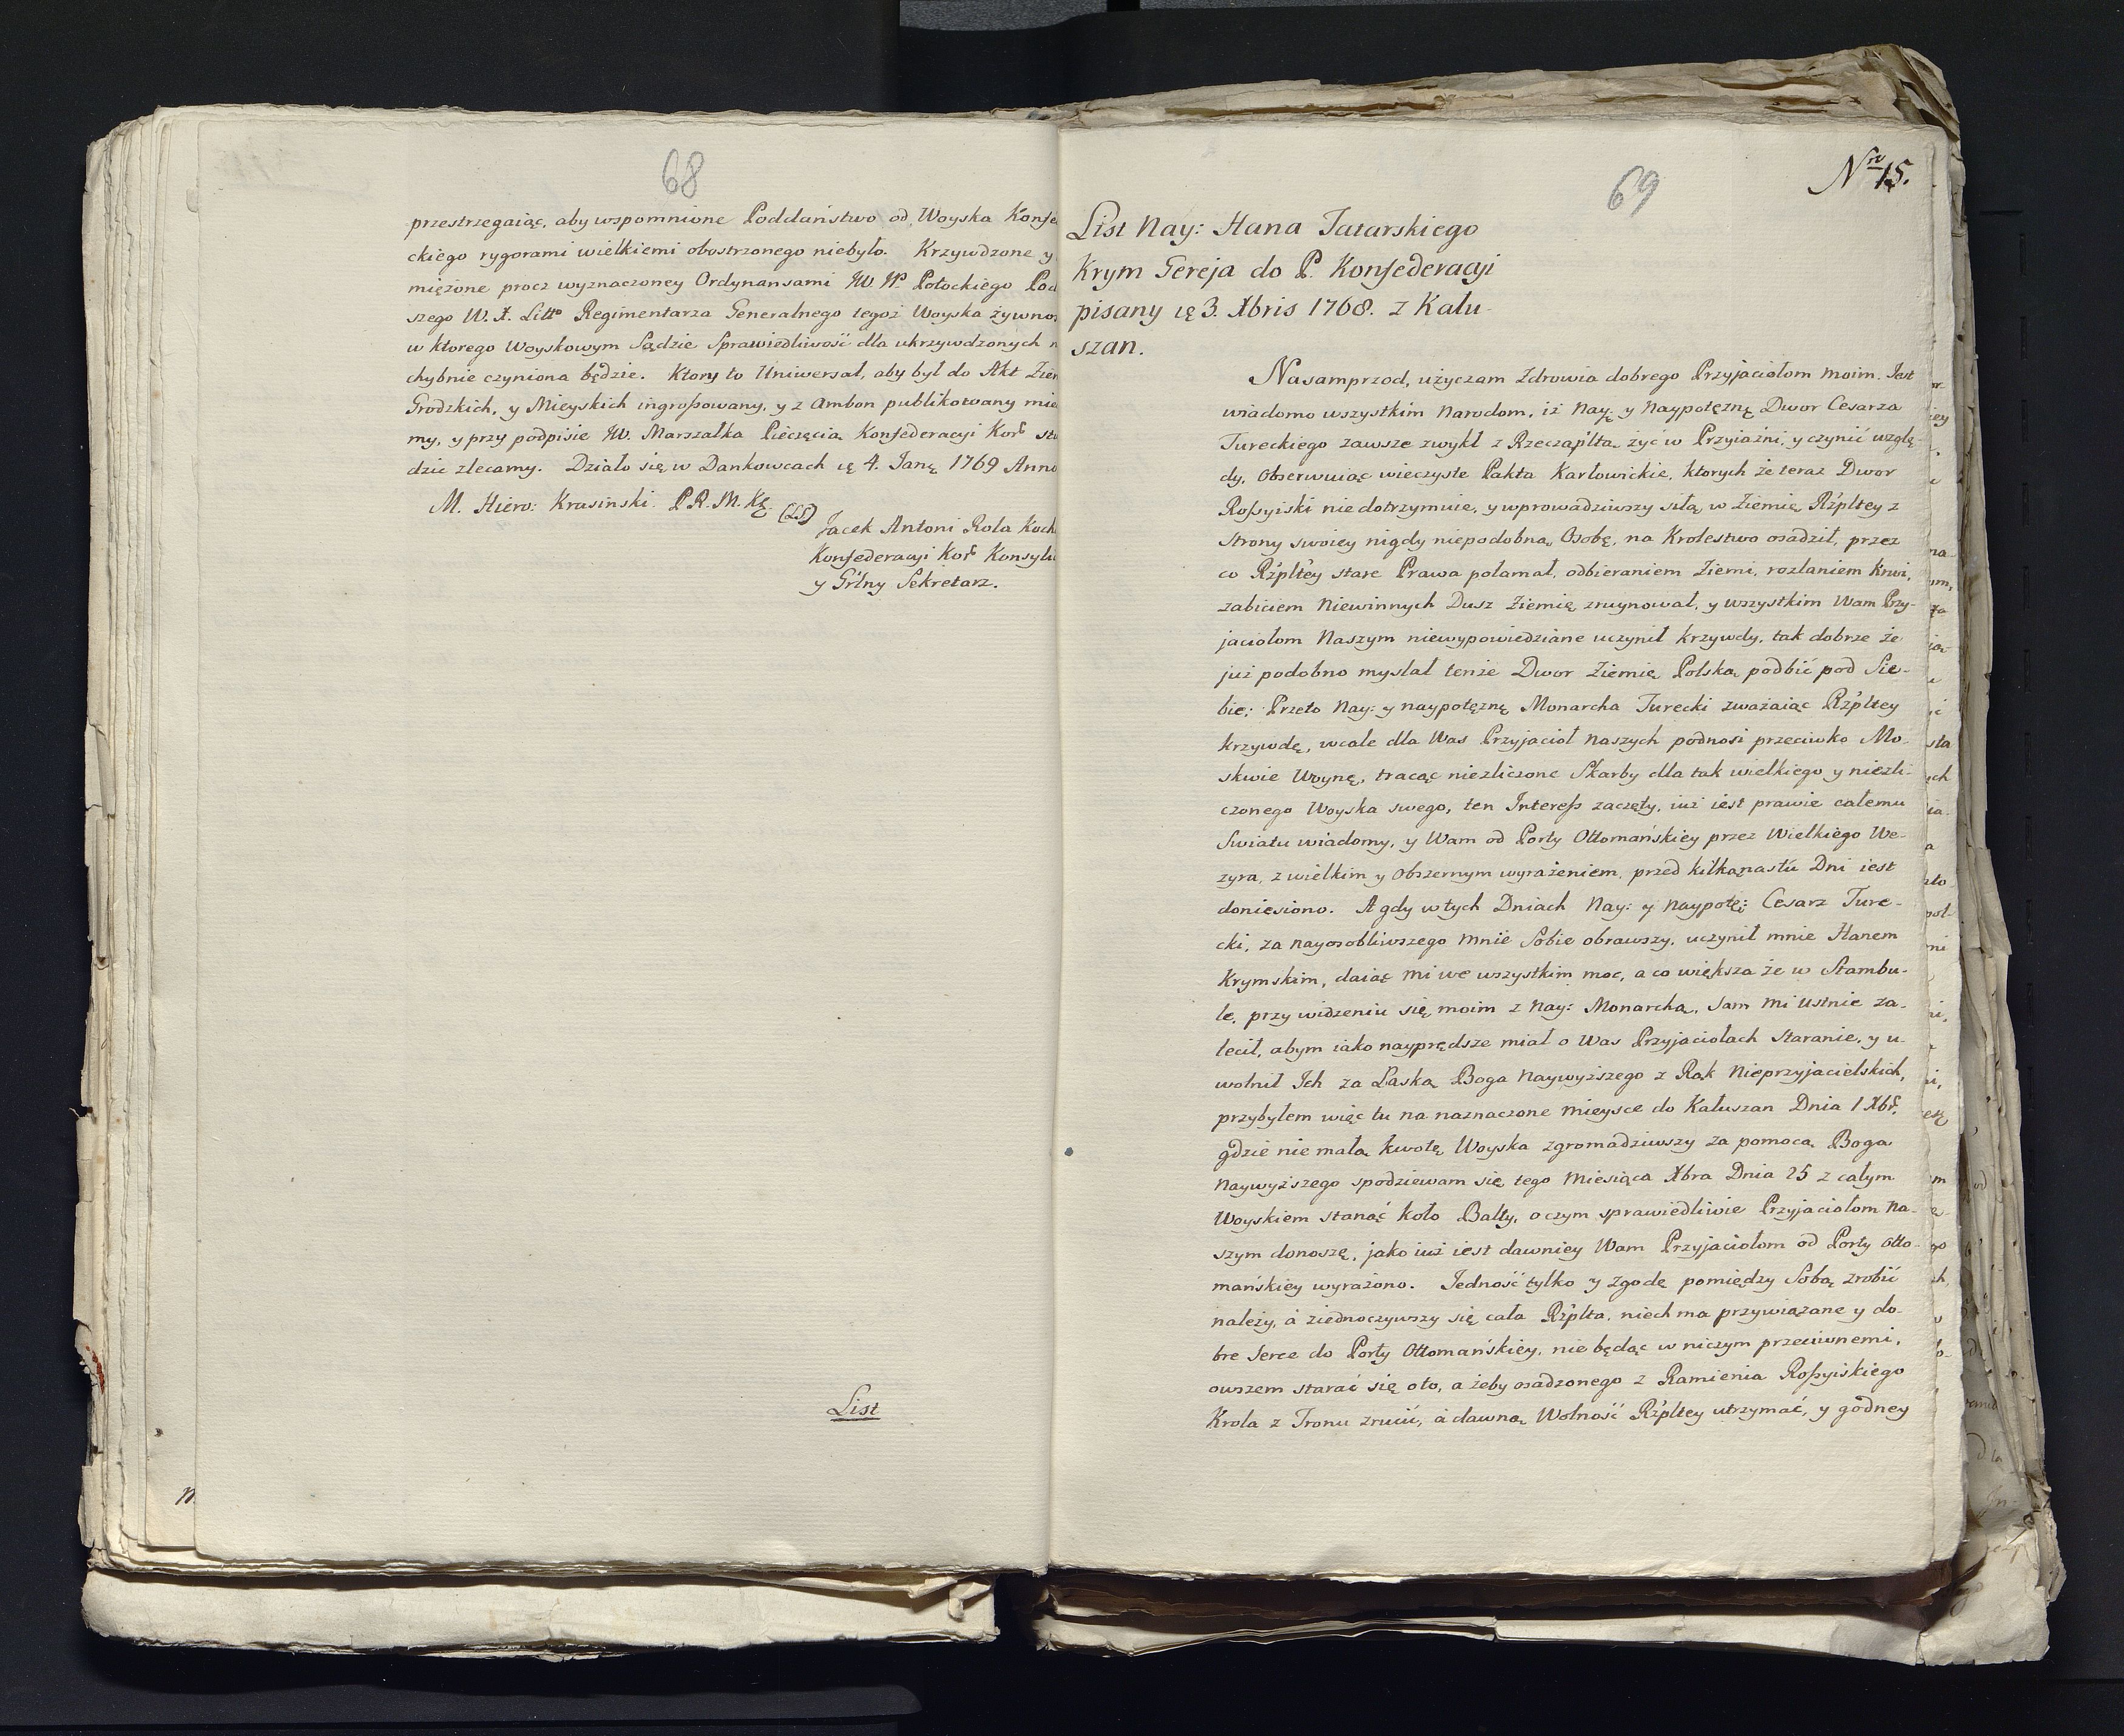 68
przestrzegaiąc, aby wspomnione Poddaństwo od Woyska Konfe
ckiego rygorami wielkiemi obostrzonego niebyło. Krzywdzone y
miężone procz wyznaczoney Ordynansami JW Potockiego Pod
szego W. X. Litto Regimentarza Generalnego tegoż Woyska żywnoś
w ktorego Woyskowym Sądzie Sprawiedliwość dla ukrzywdzonych n
chybnie czyniona będzie. Ktory to Uniwersał, aby był do Akt Ziem
Grodzkich, y Mieyskich ingrossowany, y z Ambon publikowany mie
my, y przy podpisie JW. Marszałka Pieczęcią Konfederacyi Kor stw
dzic zlecamy. Działo się w Dankowcach ię 4. Janę 1769 Anno
M. Hiero: Krasinski. P.R.M.Kę. (LS)
Jacek Antoni Rola Koch
Konfederacyi Kor Konsyli
y Grlny Sekretarz.
List
n
69
Nro 15.
List Nay: Hana Tatarskiego
Krym Gereja do P. Konfederacyi
pisany ię 3. Xbris 1768. z Kału-
szan.
Nasamprzod, użyczam Zdrowia dobrego Przyjaciołom moim. Jest
wiadomo wszystkim Narodom, iż Nayę y Naypotęznę Dwor Cesarza
Tureckiego zawsze zwykł z Rzecząpltą żyć w Przyiaźni, y czynić wzglę-
dy, Obserwuiąc wieczyste Pakta Karłowickie, ktorych że teraz Dwor
Rossyiski niedotrzymuie, y wprowadziwszy siłą w Ziemię Rzpltey z
strony swoiey nigdy niepodobną Osobę, na Krolestwo osadził, przez
co Rzpltey stare Prawa połamał, odbieraniem Ziemi, rozlaniem Krwi,
zabiciem Niewinnych Dusz Ziemię zruynował, y wszystkim Wam Przy-
jaciołom Naszym niewypowiedziane uczynił krzywdy, tak dobrze że
już podobno myslał tenże Dwor Ziemię Polską podbić pod Sie-
bie; Przeto Nay: y naypotęznę Monarcha Turecki zważaiąc Rzpltey
krzywdę, wcale dla Was Przyjacioł naszych podnosi przeciwko Mo-
skwie Woynę, tracąc niezliczone Skarby dla tak wielkiego y niezli-
czonego Woyska swego, ten Interess zaczęty, iuż iest prawie całemu
Swiatu wiadomy, y Wam od Porty Ottomańskiey przez Wielkiego We-
zyra, z wielkim y Obszernym wyrażeniem, przed kilkąnastu Dni iest
doniesiono. A gdy w tych Dniach Nay: y naypotę: Cesarz Ture-
cki, za nayosobliwszego mnie Sobie obrawszy, uczynił mnie Hanem
Krymskim, daiąc mi we wszystkim moc, a co większa że w Stambu-
le, przy widzeniu się moim z Nay: Monarchą, sam mi ustnie za-
lecił, abym iako nayprędsze miał o Was Przyjaciołach Staranie, y u-
wolnił Ich za Łaską Boga Naywyższego z Rąk Nieprzyjacielskich,
przybyłem więc tu na naznaczone mieysce do Kałuszan Dnia 1 Xbr,
gdzie nie małą kwotę Woyska zgromadziwszy za pomocą Boga
Naywyższego spodziewam się tego Miesiąca Xbra Dnia 25 z całym
Woyskiem stanąć koło Bałty, o czym sprawiedliwie Przyjaciołom Na-
szym donoszę, jako iuż iest dawniey Wam Przyjaciołom od Porty Otto-
mańskiey wyrażono. Jedność tylko y zgodę pomiędzy Sobą zrobić
należy, á ziednoczywszy się cała Rzplta, niech ma przywiązane y do-
bre Serce do Porty Ottomańskiey, nie będąc w niczym przeciwnemi,
owszem starać się oto, a żeby osadzonego z Ramienia Rossyiskiego
Krola z Tronu zrucić, á dawną Wolność Rzpltey utrzymać, y godney